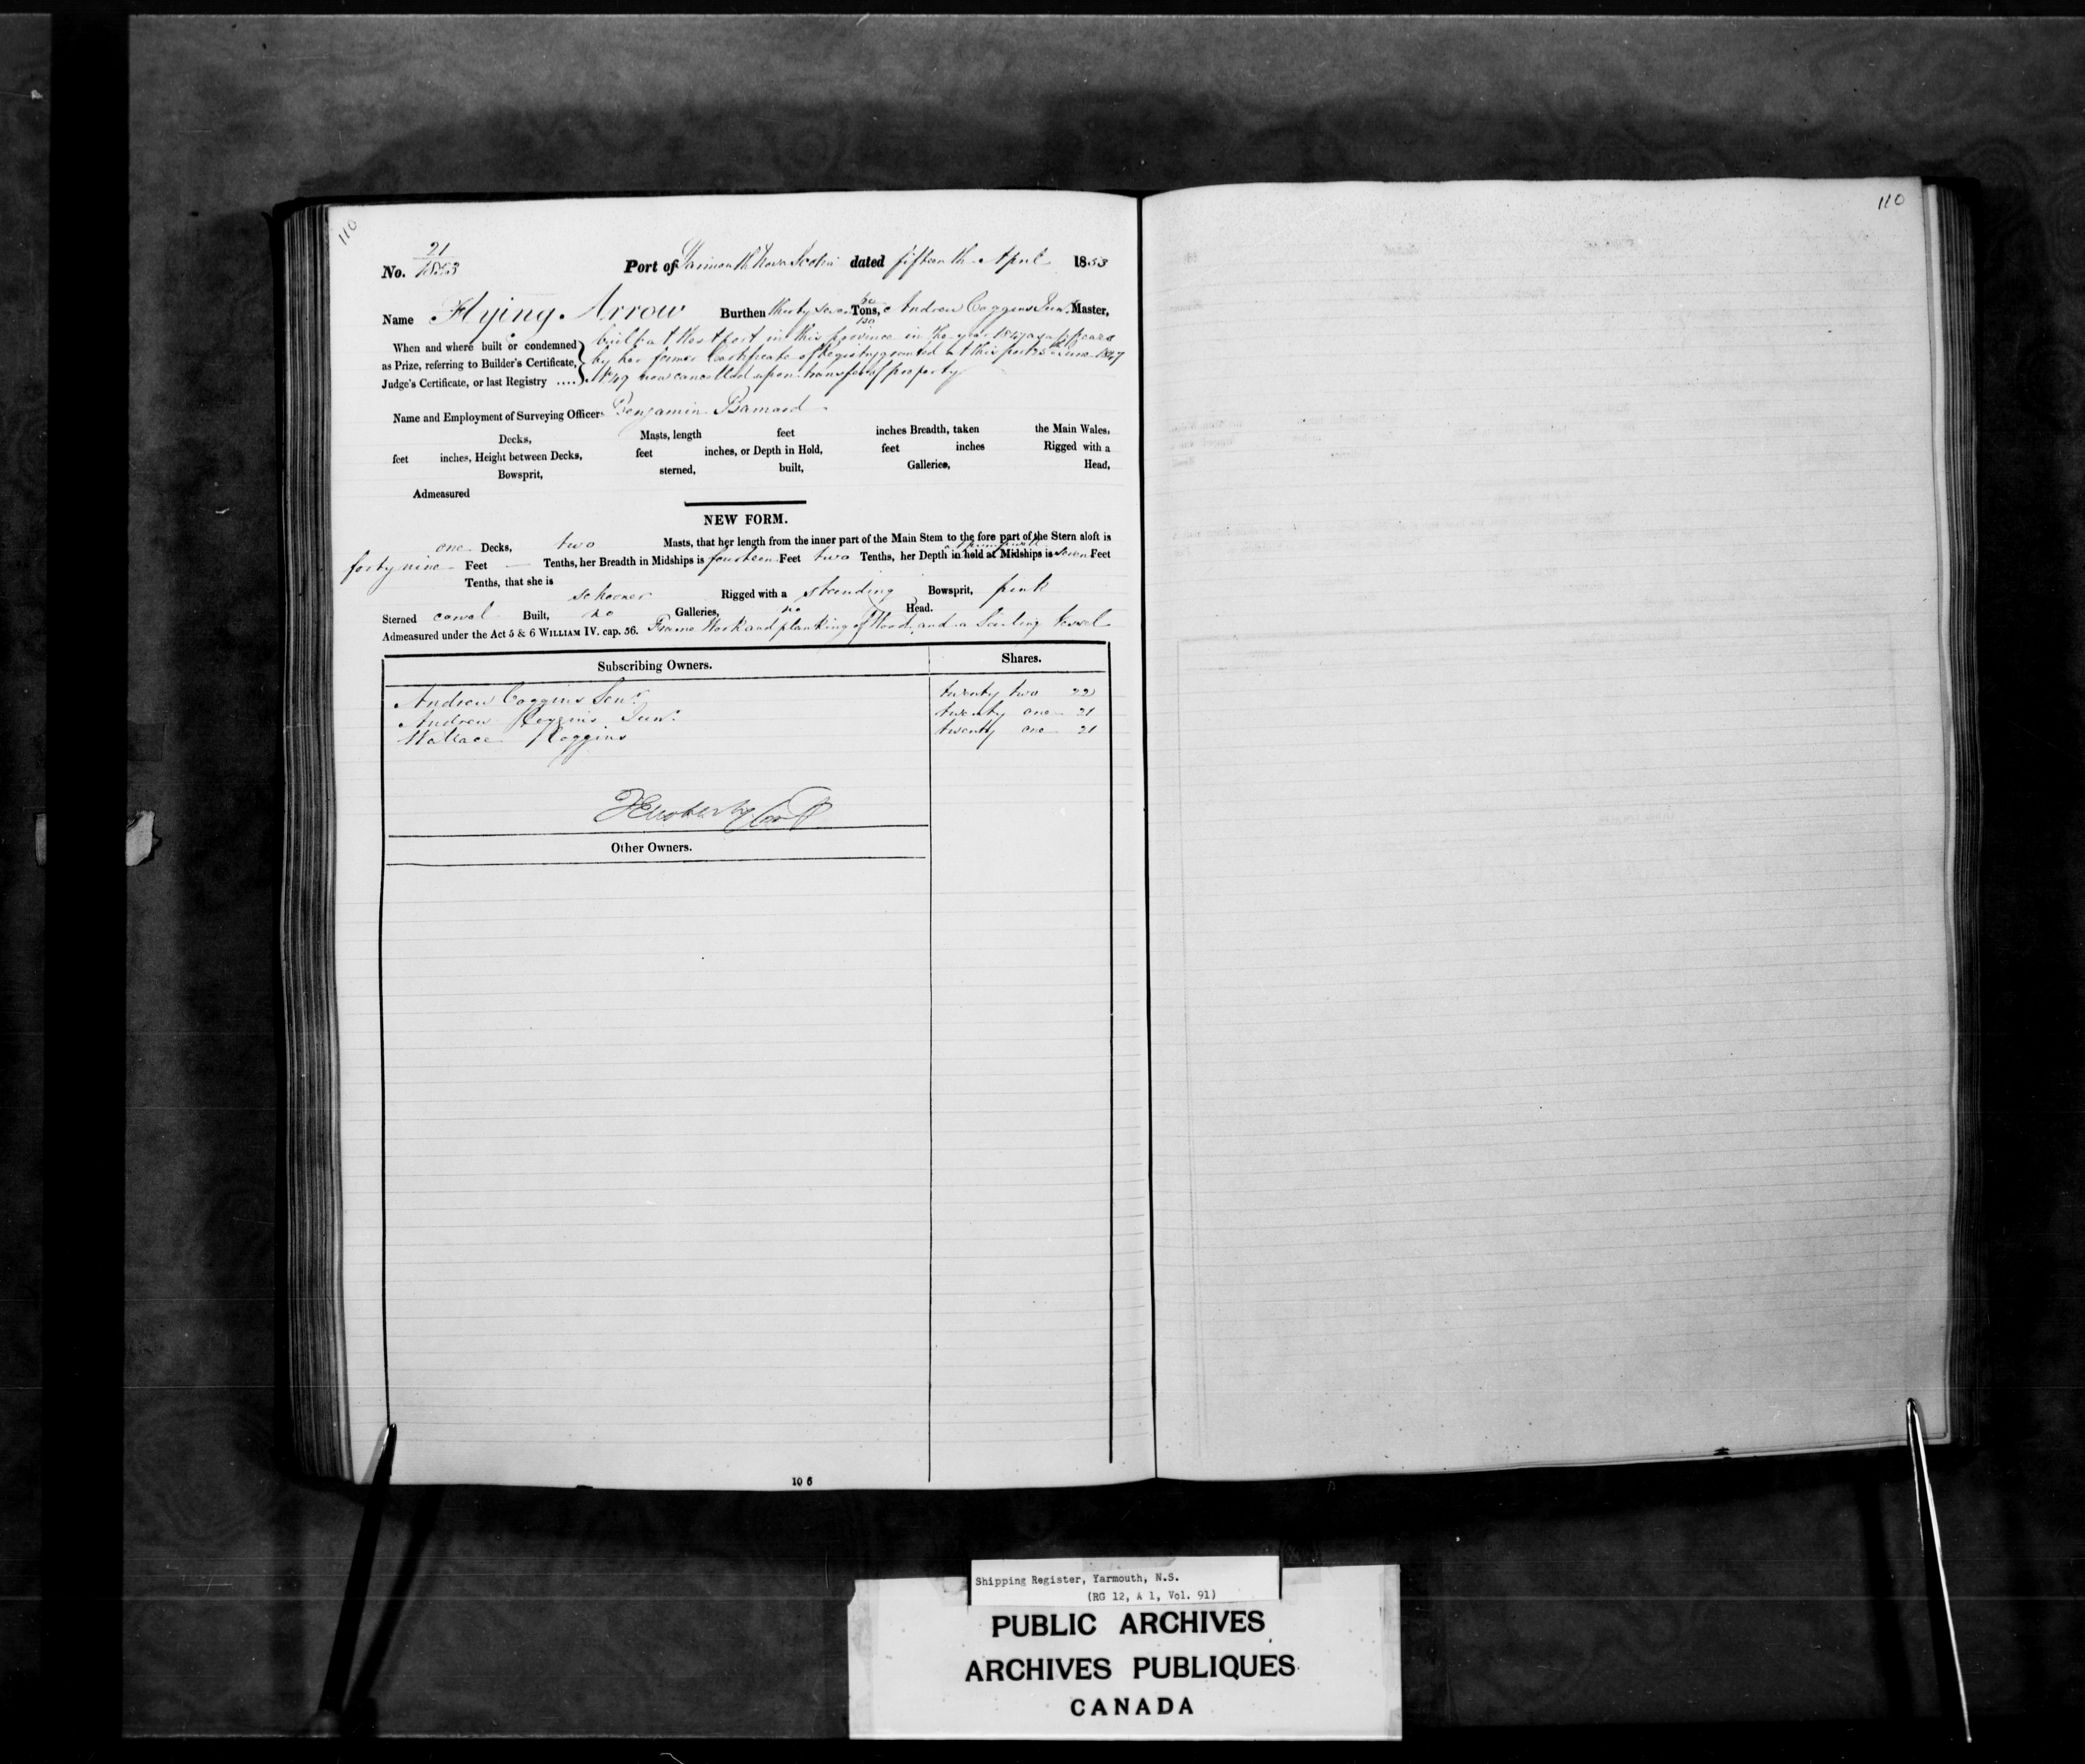 110
110
21
No. 1853 Port of Yarmouth Nova Scotia dated fifteenth April 1853
Name Flying Arrow Burthen thirty seven Tons, Andrew Coggins Junr. Master,
When and where built or condemned built at Westport in this province in the year 1847 as appears
as Prize, referring to Builder's Certificate, by her former Certificate of Registry granted at this port 25th June 1847
Judge's Certificate, or last Registry .... No. 49 now cancelled upon transfer of property
Name and Employment of Surveying Officer Benjamin Barnard
Decks, Masts, length feet inches Breadth, taken the Main Wales,
feet inches, Height between Decks, feet inches, or Depth in Hold, feet inches Rigged with a
Bowsprit, sterned, built, Galleries, Head,
Admeasured
NEW FORM.
one Decks, two Masts, that her length from the inner part of the Main Stem to the fore part of the Stern aloft is
forty nine Feet — Tenths, her Breadth in Midships is fourteen Feet two Tenths, her Depth in hold at Midships is seven Feet
Tenths, that she is schooner Rigged with a standing Bowsprit, pink
Sterned carvel Built, no Galleries, no Head.
Admeasured under the Act 5 & 6 WILLIAM IV. cap. 56. Frame Work and planking of Wood, and a Sailing Vessel
Subscribing Owners. Shares.
Andrew Coggins Senr. twenty two 22
Andrew Coggins Junr. twenty one 21
Wallace Coggins twenty one 21
Other Owners.
10 6
Shipping Register, Yarmouth, N.S.
(RG 12, A 1, Vol. 91)
PUBLIC ARCHIVES
ARCHIVES PUBLIQUES
CANADA